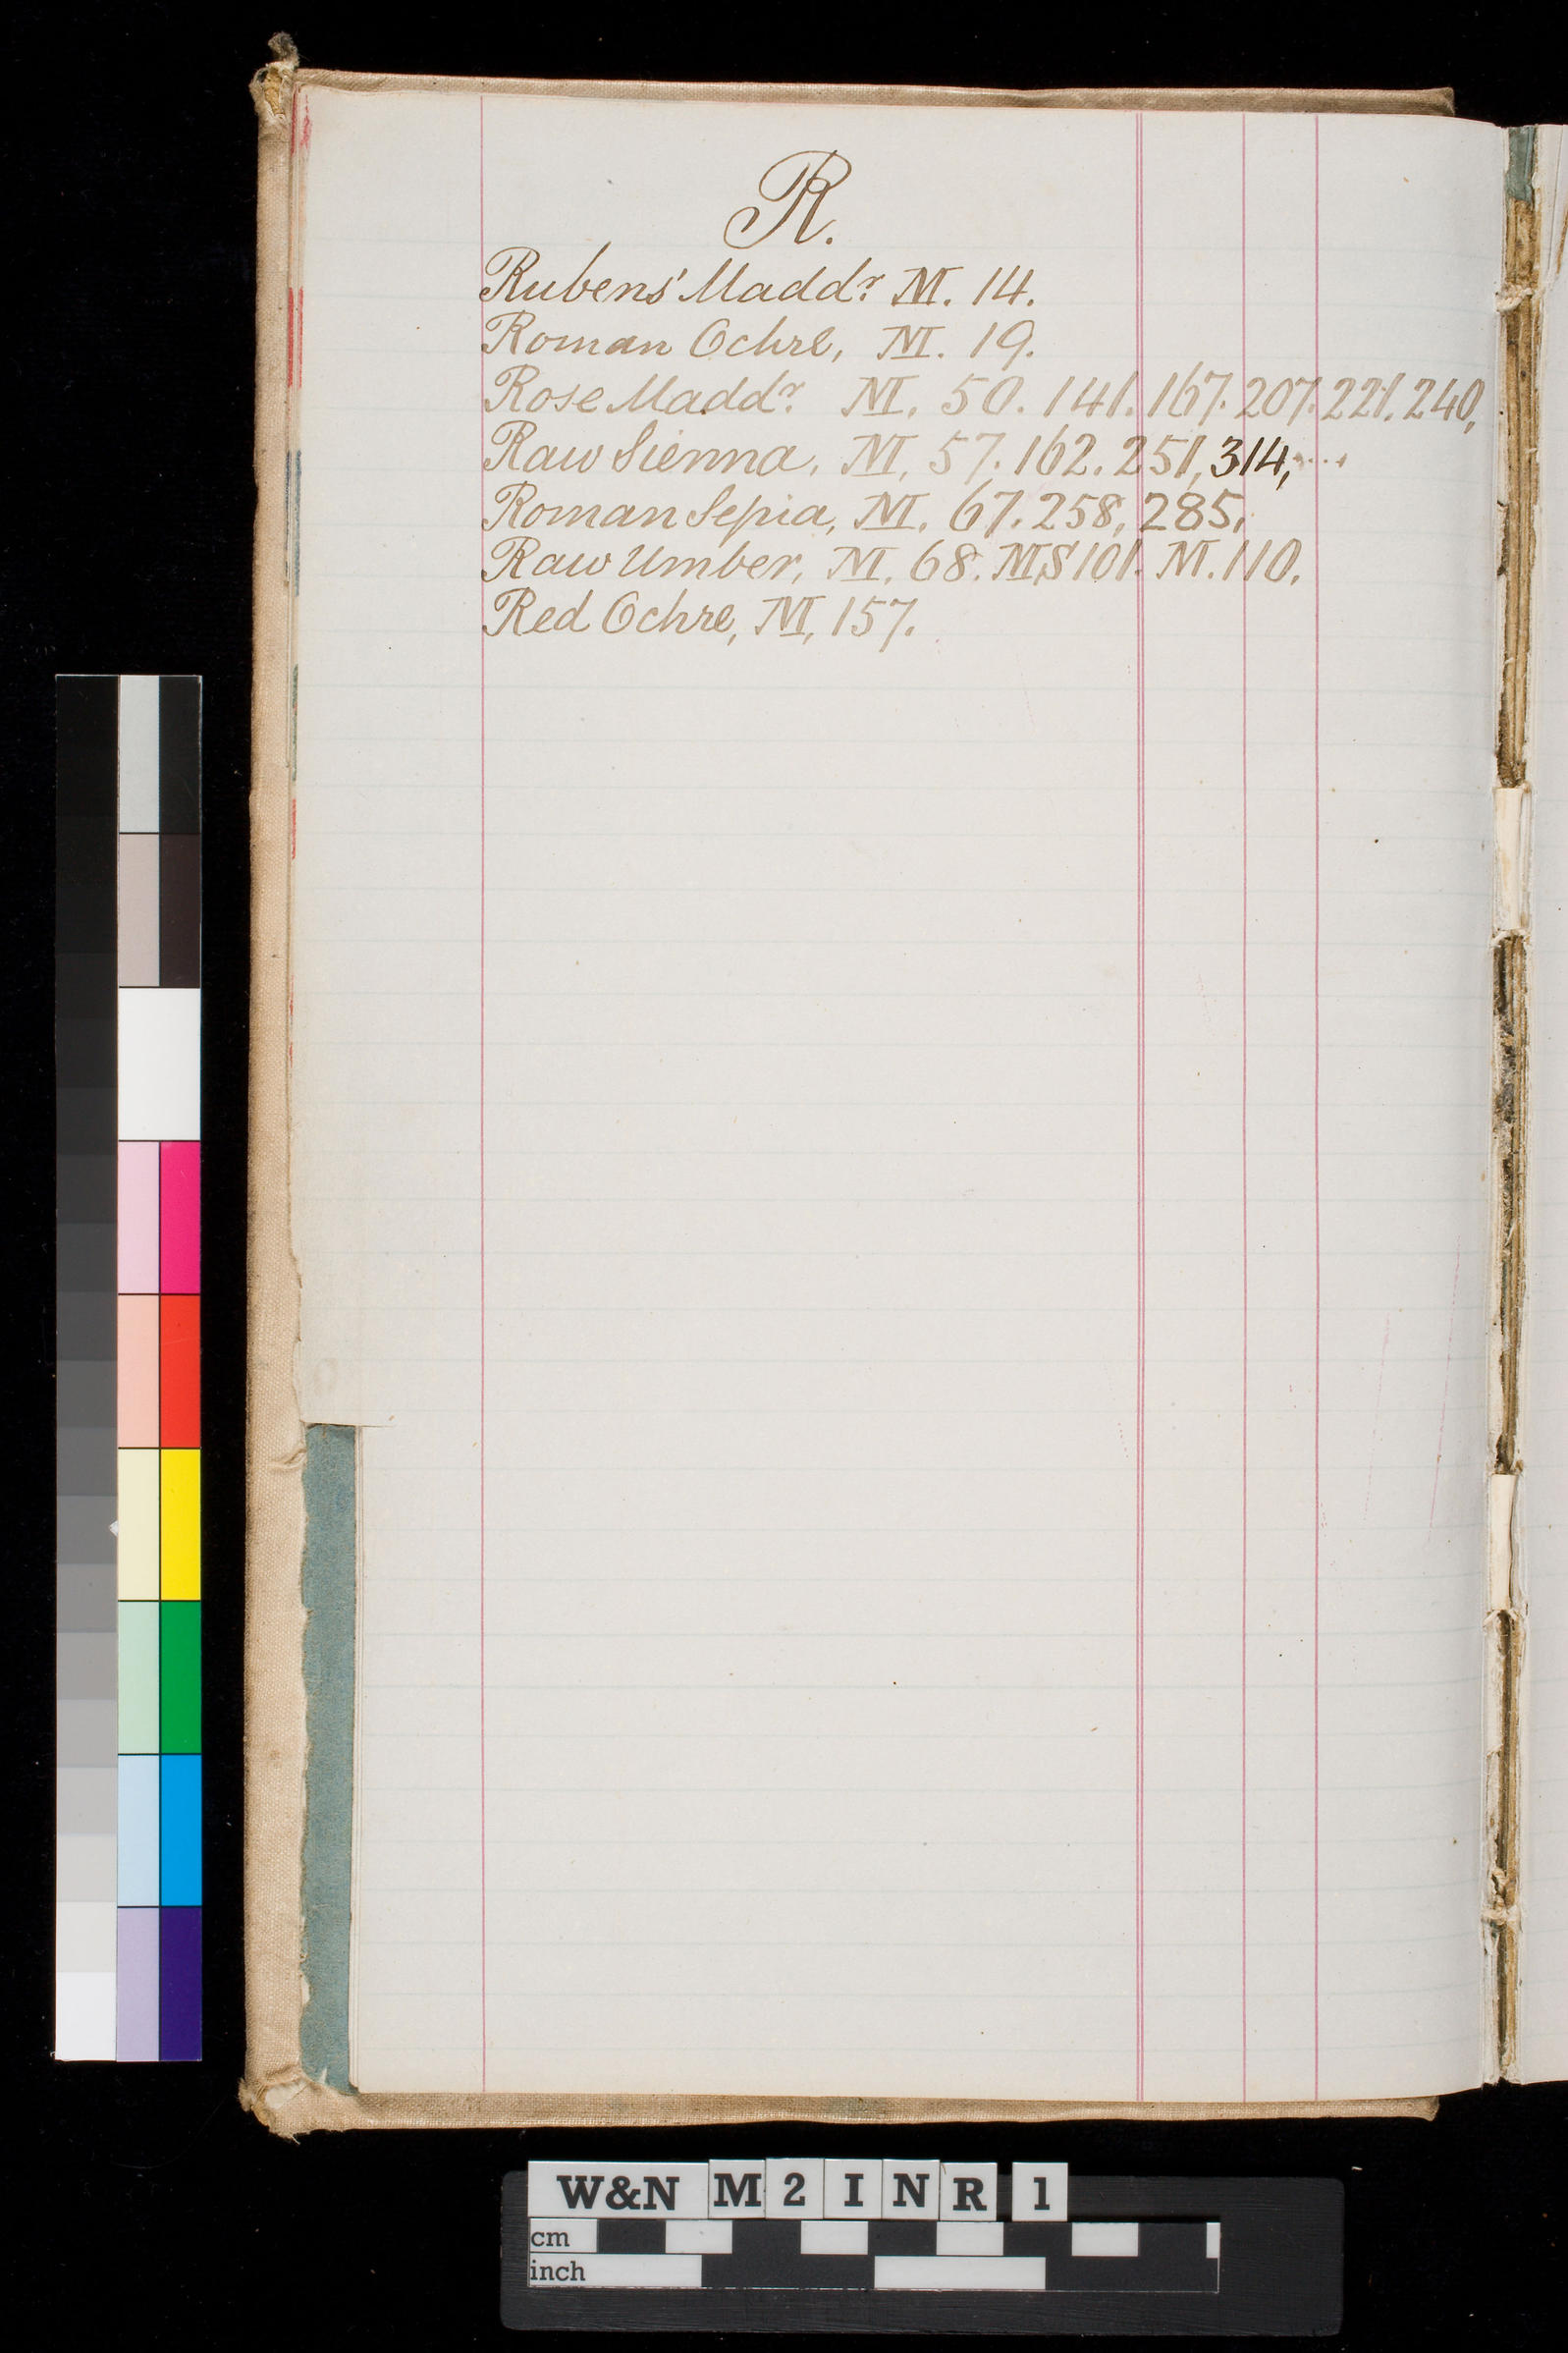 R.
Rubens' Madd<sup>r</sup>. M. 14.
Roman Ochre, M. 19.
Rose Madd<sup>r</sup>. M. 50. 141. 167. 207. 221. 240,
Raw Sienna, M, 57. 162. 251, 314, ....
Roman Sepia, M. 67. 258, 285,
Raw Umber, M. 68. MS 101. M. 110.
Red Ochre, M, 157.
W&N M 2 I N R 1
cm
inch